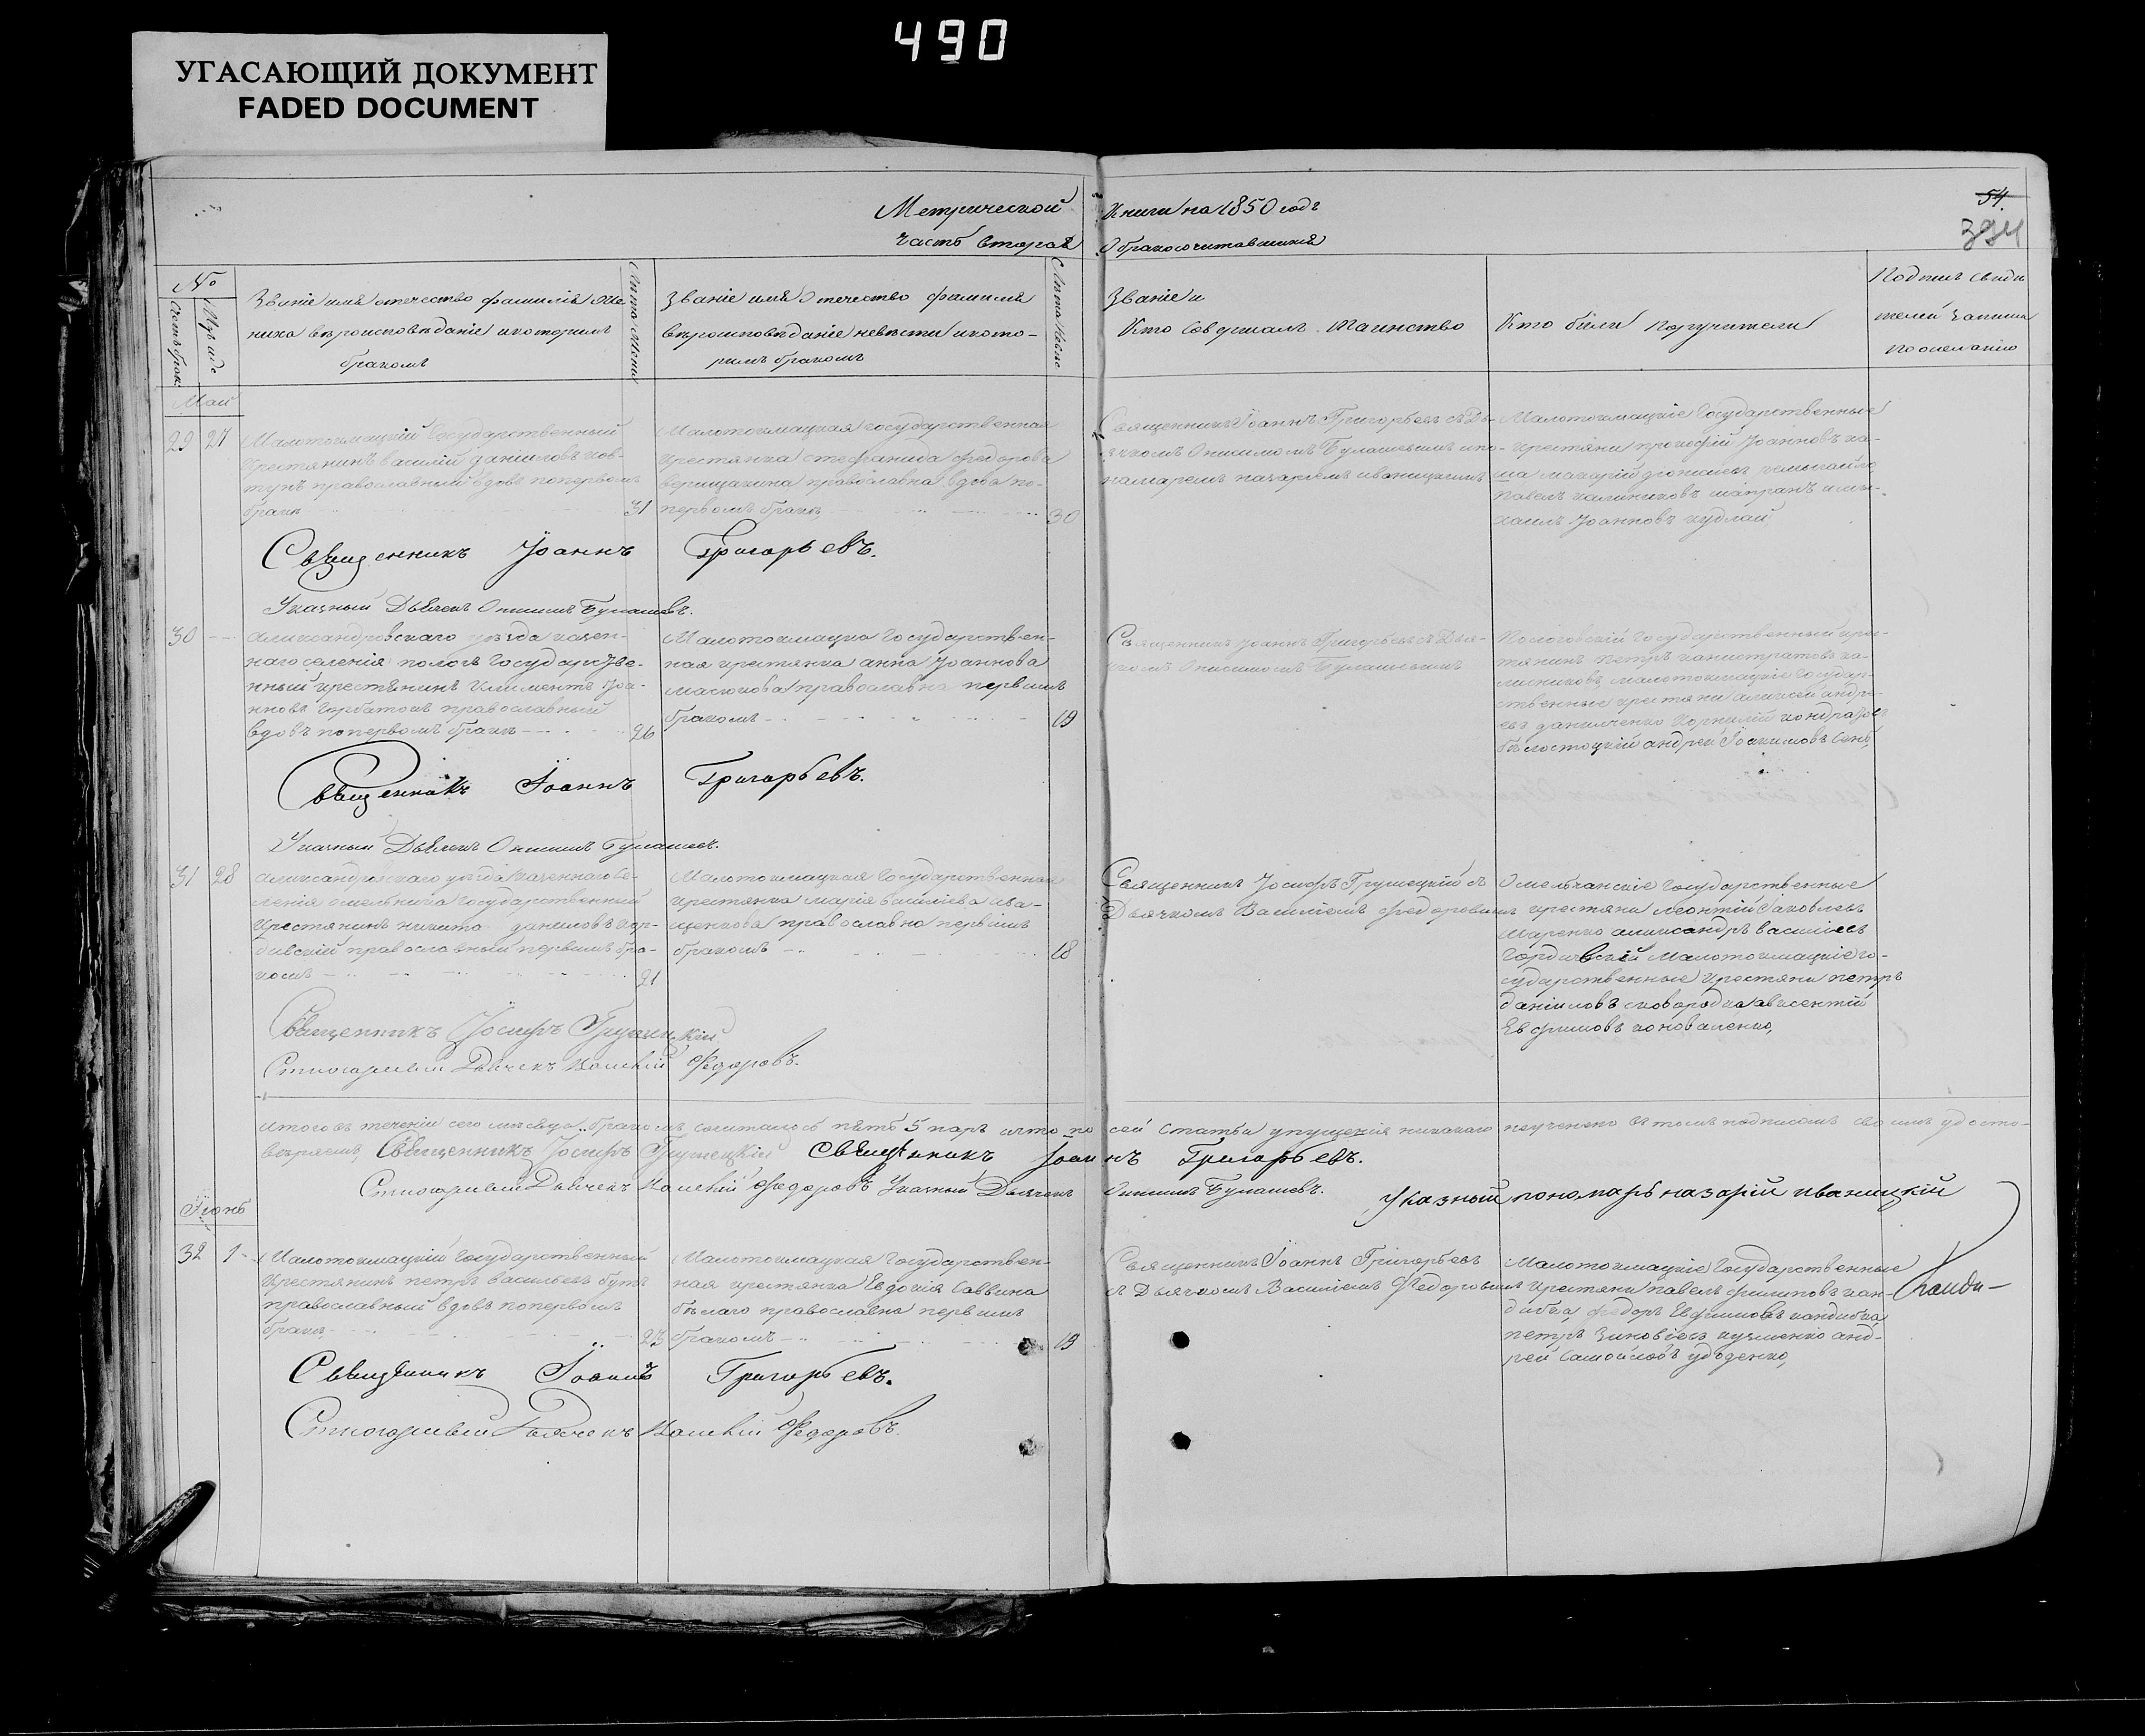 490
УГАСАЮЩИЙ ДОКУМЕНТ
FADED DOCUMENT
Метрической Книги на 1850 годъ
54.
394
часть вторая О бракосочитавшихся
№
Званіе имя отечество фамилія же-
ниха вѣроисповѣданіе и которымъ
бракомъ
Званіе имя отечество фамилія
вѣроисповѣданіе невѣсти и кото-
рымъ бракомъ
Званіе и
Кто совершалъ таинство
Кто били поручители
Подписъ свиде
телей записи
по желанію
Май
29 27
Малотокмацкій Государственный
крестянинъ василій даниловъ ков-
тунъ православный вдовъ попервомъ
бракѣ 31
Малотокмацкая государственная
крестянка стефанида федорова
верещагина православна вдова по-
первомъ бракѣ 30
Священникъ Іоаннъ Григорьевъ съ Дь-
ячкомъ Онисимомъ Булашевимъ и по-
намаремъ назаріемъ иваницкимъ
Малотокмацкіе Государственные
крестяни прокофій Іоанновъ ка-
ша макарій
павелъ калиниковъ шапранъ и ми-
хаилъ Іоанновъ кудлай
Священникъ Іоаннъ Григорьевъ.
Указный Дьячекъ Онисимъ Булашевъ.
30
Александровскаго уѣзда казен-
наго селенія пологъ Государстве-
нный крестянинъ климентъ Іоа-
нновъ горбатовъ православный
вдовъ попервомъ бракѣ 26
Малотокмацка Государствен-
ная крестянка анна Іоаннова
масюкова православна первимъ
бракомъ 19
Священникъ Іоаннъ Григорьевъ съ Дья-
чкомъ Онисимомъ Булашевимъ
Пологовскій Государственный крес-
тянинъ Петръ калистратовъ ка-
лисниковъ, малотокмацкіе Государ-
ственные крестяни алексей андре-
евъ даниленко корнилій кондратов
бѣлостоцкій андрей Іоакимовъ
Священникъ Іоаннъ Григорьевъ.
Указный Дьячекъ Онисимъ Булашевъ.
31 28
Александровскаго уѣзда казеннаго се-
ленія омельника Государственный
крестянинъ никита даниловъ гор-
дивскій православный первимъ бра-
комъ 21
Малотокмацкая Государственная
крестянка марія василіева ива-
щенкова православна первимъ
бракомъ 18
Священникъ Іосифъ Грушецкій съ
Дьячкомъ Василіемъ Федоровимъ
Омельчанскіе Государственные
крестяни леонтій Яковлевъ
Маренко александръ василіевъ
Гордивскій Малотокмацкіе го-
сударственные крестяни петръ
даниловъ сковородка авксентій
Евфимовъ коноваленко,
Священникъ Іосифъ Грушецкій
Стихоривий Дьячекъ Василій Федоровъ.
итого въ теченіи сего мѣсяца бракомъ сочиталось пять 5 паръ и что по сей статьи упущенія никакого неучинено въ томъ подписомъ своимъ удосто-
веряемъ, Священникъ Іосифъ Грушецкій Священникъ Іоаннъ Григорьевъ.
Стихоривий Дьячекъ Василій Федоровъ Указный Дьячекъ Онисимъ Булашевъ. Указный пономарь назарій иваницкій
Іюнь
32 1
Малотокмацкій Государственный
крестянинъ петръ васильевъ бутъ
православный вдовъ попервомъ
бракѣ 23
Малотокмацкая Государствен-
ная крестянка Евдокія Саввина
бѣлаго православна первимъ
бракомъ 19
Священникъ Іоаннъ Григорьевъ
съ Дьячкомъ Василіемъ Федоровимъ
Малотокмацкіе Государственные
крестяни павелъ филиповъ кан-
дибка, федоръ Евфимовъ кандибка
петръ Зиновіевъ кузменко анд-
рей Самойловъ удоденко,
Священникъ Іоаннъ Григорьевъ.
Стихоривий Дьячекъ Василій Федоровъ.